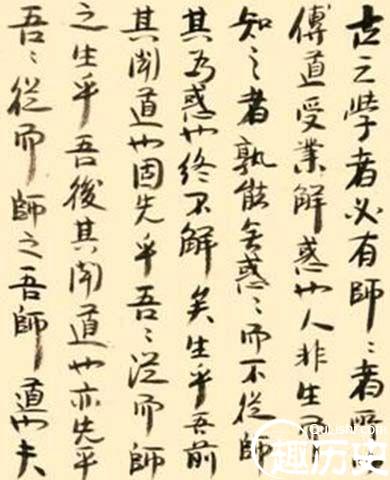 古之學者必有師〻者所
傳道受業解惑也人非生而
知之者孰能無惑〻而不從師
其為惑也終不解矣生乎吾前
其聞道也固先乎吾〻從而師
之生乎吾後其聞道也亦先乎
吾〻從而師之吾師道也夫
Qulishi.com
趣历史